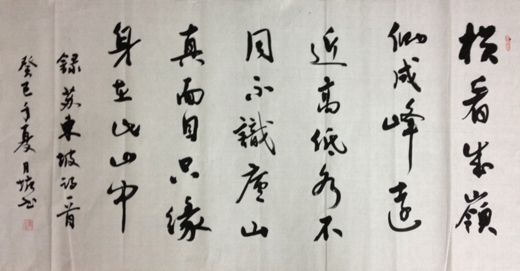 横看成嶺
側成峰遠
近高低各不
同不識廬山
真面目只緣
身在此山中
錄蘇東坡詩一首
癸巳年夏月